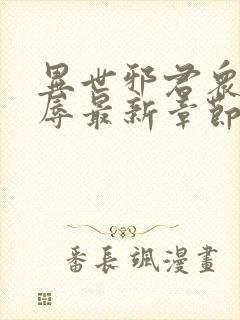 異世邪君衆
辱最新章節
番長飒漫畫